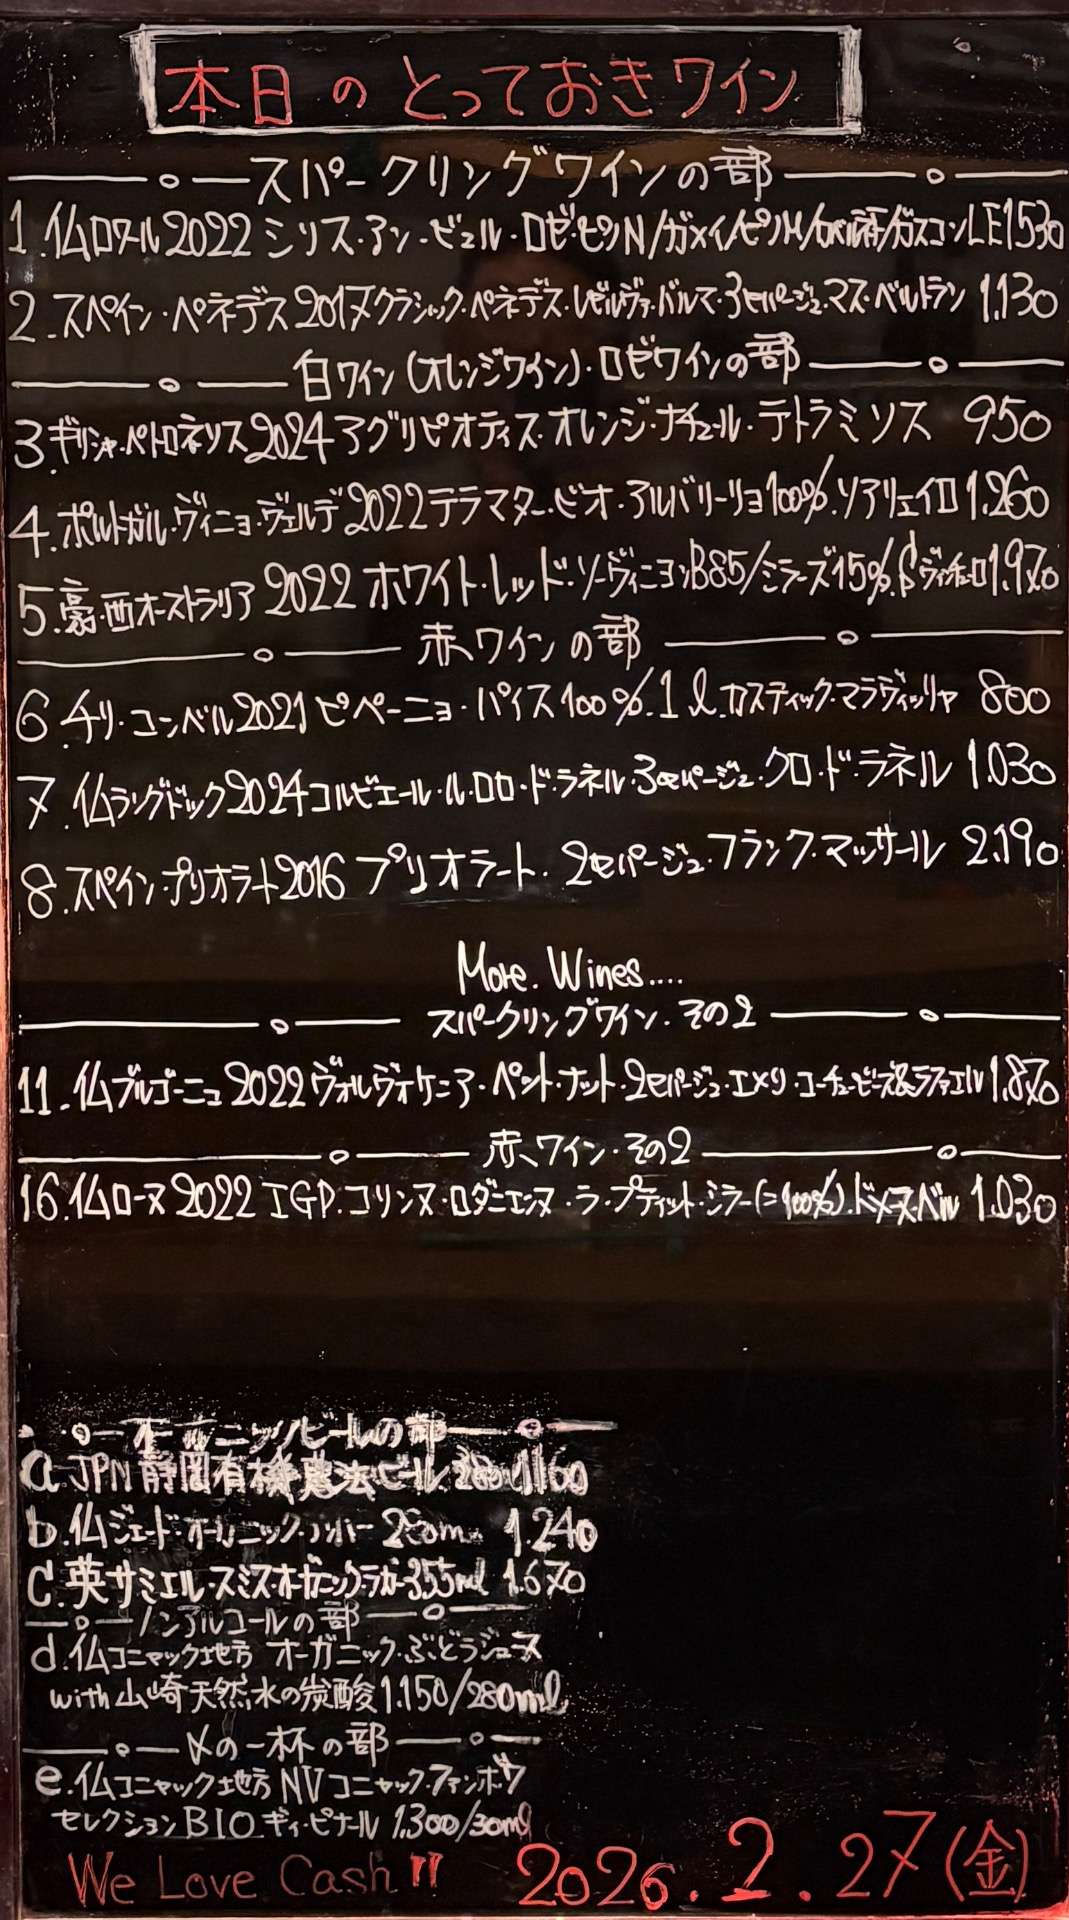 本日のとっておきワイン
スパークリングワインの部
1.仏ロワール2022 シリス・アン・ビュル・ロゼ・ピノN/ガメイ/ピノM/ガスコンLE1530
2.スペイン・ペネデス2017クラシック・ペネデス・レゼルヴァ・バルマ・3セパージュ・マス・ベルトラン 1.130
白ワイン(オレンジワイン)・ロゼワインの部
3.ギリシャ・ペトロネソス2024アグリピオティス・オレンジ・ナチュール・テトラミソス 950
4.ポルトガル・ヴィニョ・ヴェルデ2022テラマター・ビオ・アルバリーリョ100%.ソアリェイロ 1.260
5.豪・西オーストラリア2022ホワイト・レッド・ソーヴィニヨンB85/シラーズ15%.ヴィンチェロ1.970
赤ワインの部
6.チリ・コンベル2021ピペーニョ・パイス100%.1ℓ.カスティック・マラヴィッリャ 800
7.仏ラングドック2024コルビエール・ル・ロロ・ド・ラネル・3セパージュ・クロ・ド・ラネル 1.030
8.スペイン・プリオラート2016 プリオラート・2セパージュ・フランク・マッサール 2.190
More. Wines....
スパークリングワイン・その2
11.仏ブルゴーニュ2022ヴォルヴィケニア・ペット・ナット・2セパージュ・エメリ・コーチュ・ビーズ&ラファエル 1.870
赤ワイン・その2
16.仏ローヌ2022 IGP.コリンヌ・ロダニエンヌ・ラ・プティット・シラー(=100%).ドメーヌ・ベル 1.030
オーガニックビールの部
a.JPN静岡有機農法ビール 280ml 1160
b.仏ジェード・オーガニック・アンバー 250ml 1.240
c.英サミエル・スミス・オーガニックラガー355ml 1.670
ノンアルコールの部
d.仏コニャック地方 オーガニック・ぶどうジュース
with山崎天然水の炭酸1.150/280ml
〆の一杯の部
e.仏コニャック地方NVコニャック・ファンボワ
セレクションBIOギィ・ピナール 1.300/30ml
We Love Cash!!
2026.2.27(金)